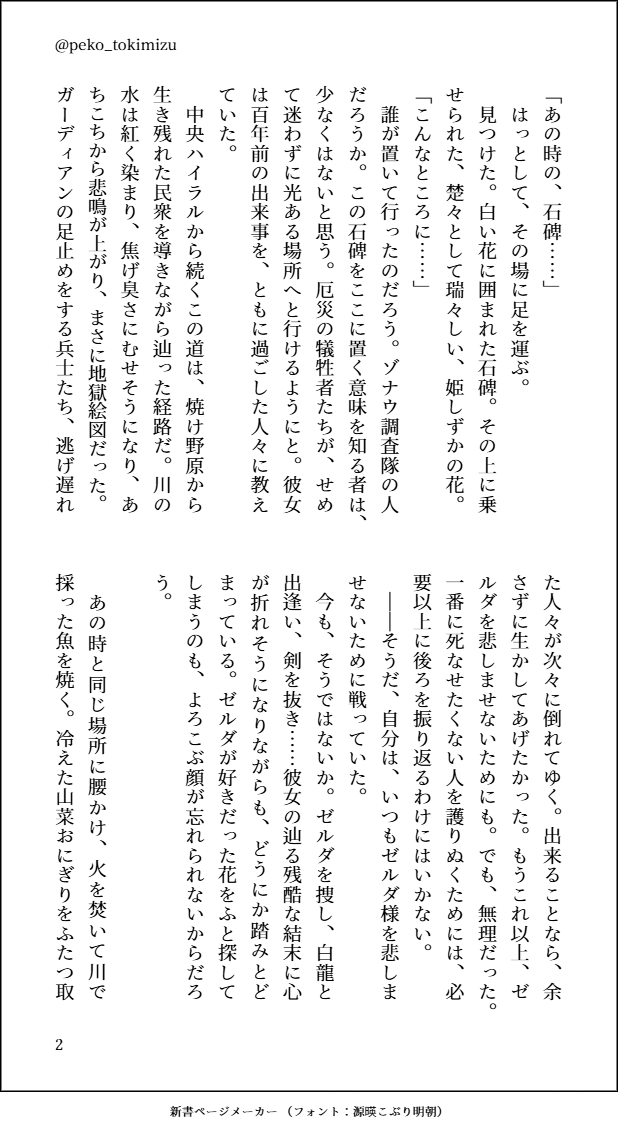 @peko_tokimizu
「あの時の、石碑……」
はっとして、その場に足を運ぶ。
見つけた。白い花に囲まれた石碑。その上に乗
せられた、楚々として瑞々しい、姫しずかの花。
「こんなところに……」
誰が置いて行ったのだろう。ゾナウ調査隊の人
だろうか。この石碑をここに置く意味を知る者は、
少なくはないと思う。厄災の犠牲者たちが、せめ
て迷わずに光ある場所へと行けるようにと。彼女
は百年前の出来事を、ともに過ごした人々に教え
ていた。
中央ハイラルから続くこの道は、焼け野原から
生き残れた民衆を導きながら辿った経路だ。川の
水は紅く染まり、焦げ臭さにむせそうになり、あ
ちこちから悲鳴が上がり、まさに地獄絵図だった。
ガーディアンの足止めをする兵士たち、逃げ遅れ
た人々が次々に倒れてゆく。出来ることなら、余
さずに生かしてあげたかった。もうこれ以上、ゼ
ルダを悲しませないためにも。でも、無理だった。
一番に死なせたくない人を護りぬくためには、必
要以上に後ろを振り返るわけにはいかない。
――そうだ、自分は、いつもゼルダ様を悲しま
せないために戦っていた。
今も、そうではないか。ゼルダを捜し、白龍と
出逢い、剣を抜き……彼女の辿る残酷な結末に心
が折れそうになりながらも、どうにか踏みとど
まっている。ゼルダが好きだった花をふと探して
しまうのも、よろこぶ顔が忘れられないからだろ
う。
あの時と同じ場所に腰かけ、火を焚いて川で
採った魚を焼く。冷えた山菜おにぎりをふたつ取
2
新書ページメーカー（フォント：源暎こぶり明朝）